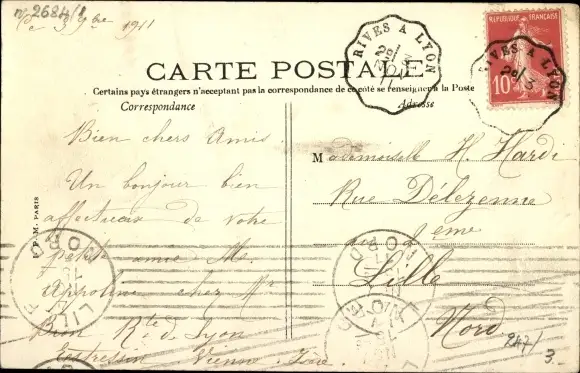 n° 2684/1
3 9bre 1911
RIVES A LYON
RIVES A LYON
RÉPUBLIQUE FRANÇAISE
10
CARTE POSTALE
Certains pays étrangers n'acceptent pas la correspondance de ce côté se renseigner à la Poste
Correspondance
Adresse
Bien chers Amis
Un bonjour bien
affectueux de votre
petite amie Me.
Appoline chez Mr
Bien Rte de Lyon
Vienne Isère
P. M. PARIS
Mademoiselle H. Hardi
Rue Délezenne
Lille
Nord
LILLE NORD
247/1
3